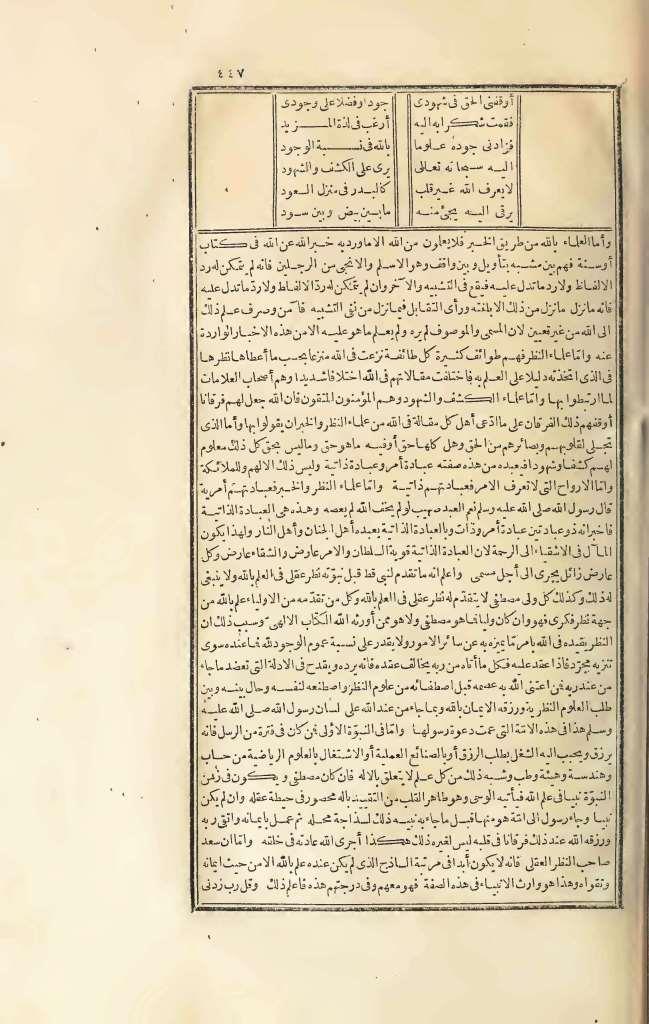 ٤٤٧
أوقفنى الحق فى شهودى جودا وفضلا على وجودى
فقمت شكرا به اليه أرغب فى لذة المزيد
فزادنى جوده علوما بالله فى نسبة الوجود
اليه سبحانه تعالى يرى على الكشف والشهود
لا يعرف الله غير قلب كالبدر فى منزل السعود
يرقى اليه يجئ منه ما بين بيض وبين سود
وأما العلماء بالله من طريق الخبر فلا يعلمون من الله الا ما ورد به خبر الله عن الله فى كتاب
أو سنة فهم بين مشبه بتأويل وبين واقف وهو الاسلم والانجى من الرجلين فانه لم يتمكن له رد
الالفاظ ولا رد ما تدل عليه فيقع فى التشبيه والآخر وان لم يتمكن له رد الالفاظ ولا رد ما تدل عليه
فانه ما نزل ما نزل من ذلك الا بلغته ورأى التقابل فيما نزل من نفى التشبيه فآمن وصرف علم ذلك
الى الله من غير تعيين لان المسمى والموصوف لم يره ولم يعلم ما هو عليه الا من هذه الاخبار الواردة
عنه وأما علماء النظر فهم طوائف كثيرة كل طائفة نزعت فى الله منزعا بحسب ما أعطاها نظرها
فى الذى اتخذته دليلا على العلم به فاختلفت مقالاتهم فى الله اختلافا شديدا وهم أصحاب العلامات
لما ارتبطوا بها وأما علماء الكشف والشهود وهم المؤمنون المتقون فان الله جعل لهم فرقانا
أوقفهم ذلك الفرقان على ما ادعى أهل كل مقالة فى الله من علماء النظر والخبر ان يقولوا بها وأما الذى
تجلى لقلوبهم وبصائرهم من الحق وهل كلها حق أو فيه ما هو حق وما ليس بحق كل ذلك معلوم
لهم كشفا وشهودا فيعبده من هذه صفته عبادة أمر وعبادة ذاتية وليس ذلك الا لهم وللملائكة
وأما الارواح التى لا تعرف الامر فعبادتهم ذاتية وأما علماء النظر والخبر فعبادتهم أمرية
قال رسول الله صلى الله عليه وسلم نعم العبد صهيب لو لم يخف الله لم يعصه وهذه هى العبادة الذاتية
فأخبر انه ذو عبادتين عبادة أمر وذات وبالعبادة الذاتية يعبده أهل الجنان وأهل النار ولهذا يكون
المآل فى الاشقياء الى الرحمة لان العبادة الذاتية قوية السلطان والامر عارض والشقاء عارض وكل
عارض زائل يجرى الى أجل مسمى واعلم انه ما تقدم لنبى قط قبل نبوته نظر عقلى فى العلم بالله ولا ينبغى
له ذلك وكذلك كل ولى مصطفى لا يتقدم له نظر عقلى فى العلم بالله وكل من تقدمه من الاولياء علم بالله من
جهة نظر فكرى فهو وان كان وليا فما هو مصطفى ولا هو ممن أورثه الله الكتاب الالهى وسبب ذلك ان
النظر يقيده فى الله بأمر ما يميزه به عن سائر الامور ولا يقدر على نسبة عموم الوجود لله فما عنده سوى
تنزيه مجرد فاذا عقد عليه فكل ما أتاه من ربه يخالف عقده فانه يرده ويقدح فى الادلة التى تعضد ما جاء
من عند ربه فمن اعتنى الله به عصمه قبل اصطفائه من علوم النظر واصطنعه لنفسه وحال بينه وبين
طلب العلوم النظرية ورزقه الايمان بالله وبما جاء من عند الله على لسان رسول الله صلى الله عليه
وسلم هذا فى هذه الامة التى عمت دعوة رسولها وأما فى النبوة الاولى فمن كان فى فترة من الرسل فانه
يرزق ويحبب اليه الشغل بطلب الرزق أو بالصنائع العملية أو الاشتغال بالعلوم الرياضية من حساب
وهندسة وهيئة وطب وشبه ذلك من كل علم لا يتعلق بالاله فان كان مصطفى ويكون فى زمن
النبوة نبيا فى علم الله فيأتيه الوحى وهو طاهر القلب من التقييد باله محصور فى حيطة عقله وان لم يكن
نبيا وجاء رسول الى امة هو منها قبل ما جاءه به نبيه ذلك لسذاجة محله ثم عمل بايمانه واتقى ربه
ورزقه الله عند ذلك فرقانا فى قلبه ليس لغيره ذلك هكذا أجرى الله عادته فى خلقه وأما ان سعد
صاحب النظر العقلى فانه لا يكون أبدا فى مرتبة الساذج الذى لم يكن عنده علم بالله الا من حيث ايمانه
وتقواه وهذا هو وارث الانبياء فى هذه الصفة فهو معهم وفى درجتهم هذه فاعلم ذلك وقل رب زدنى